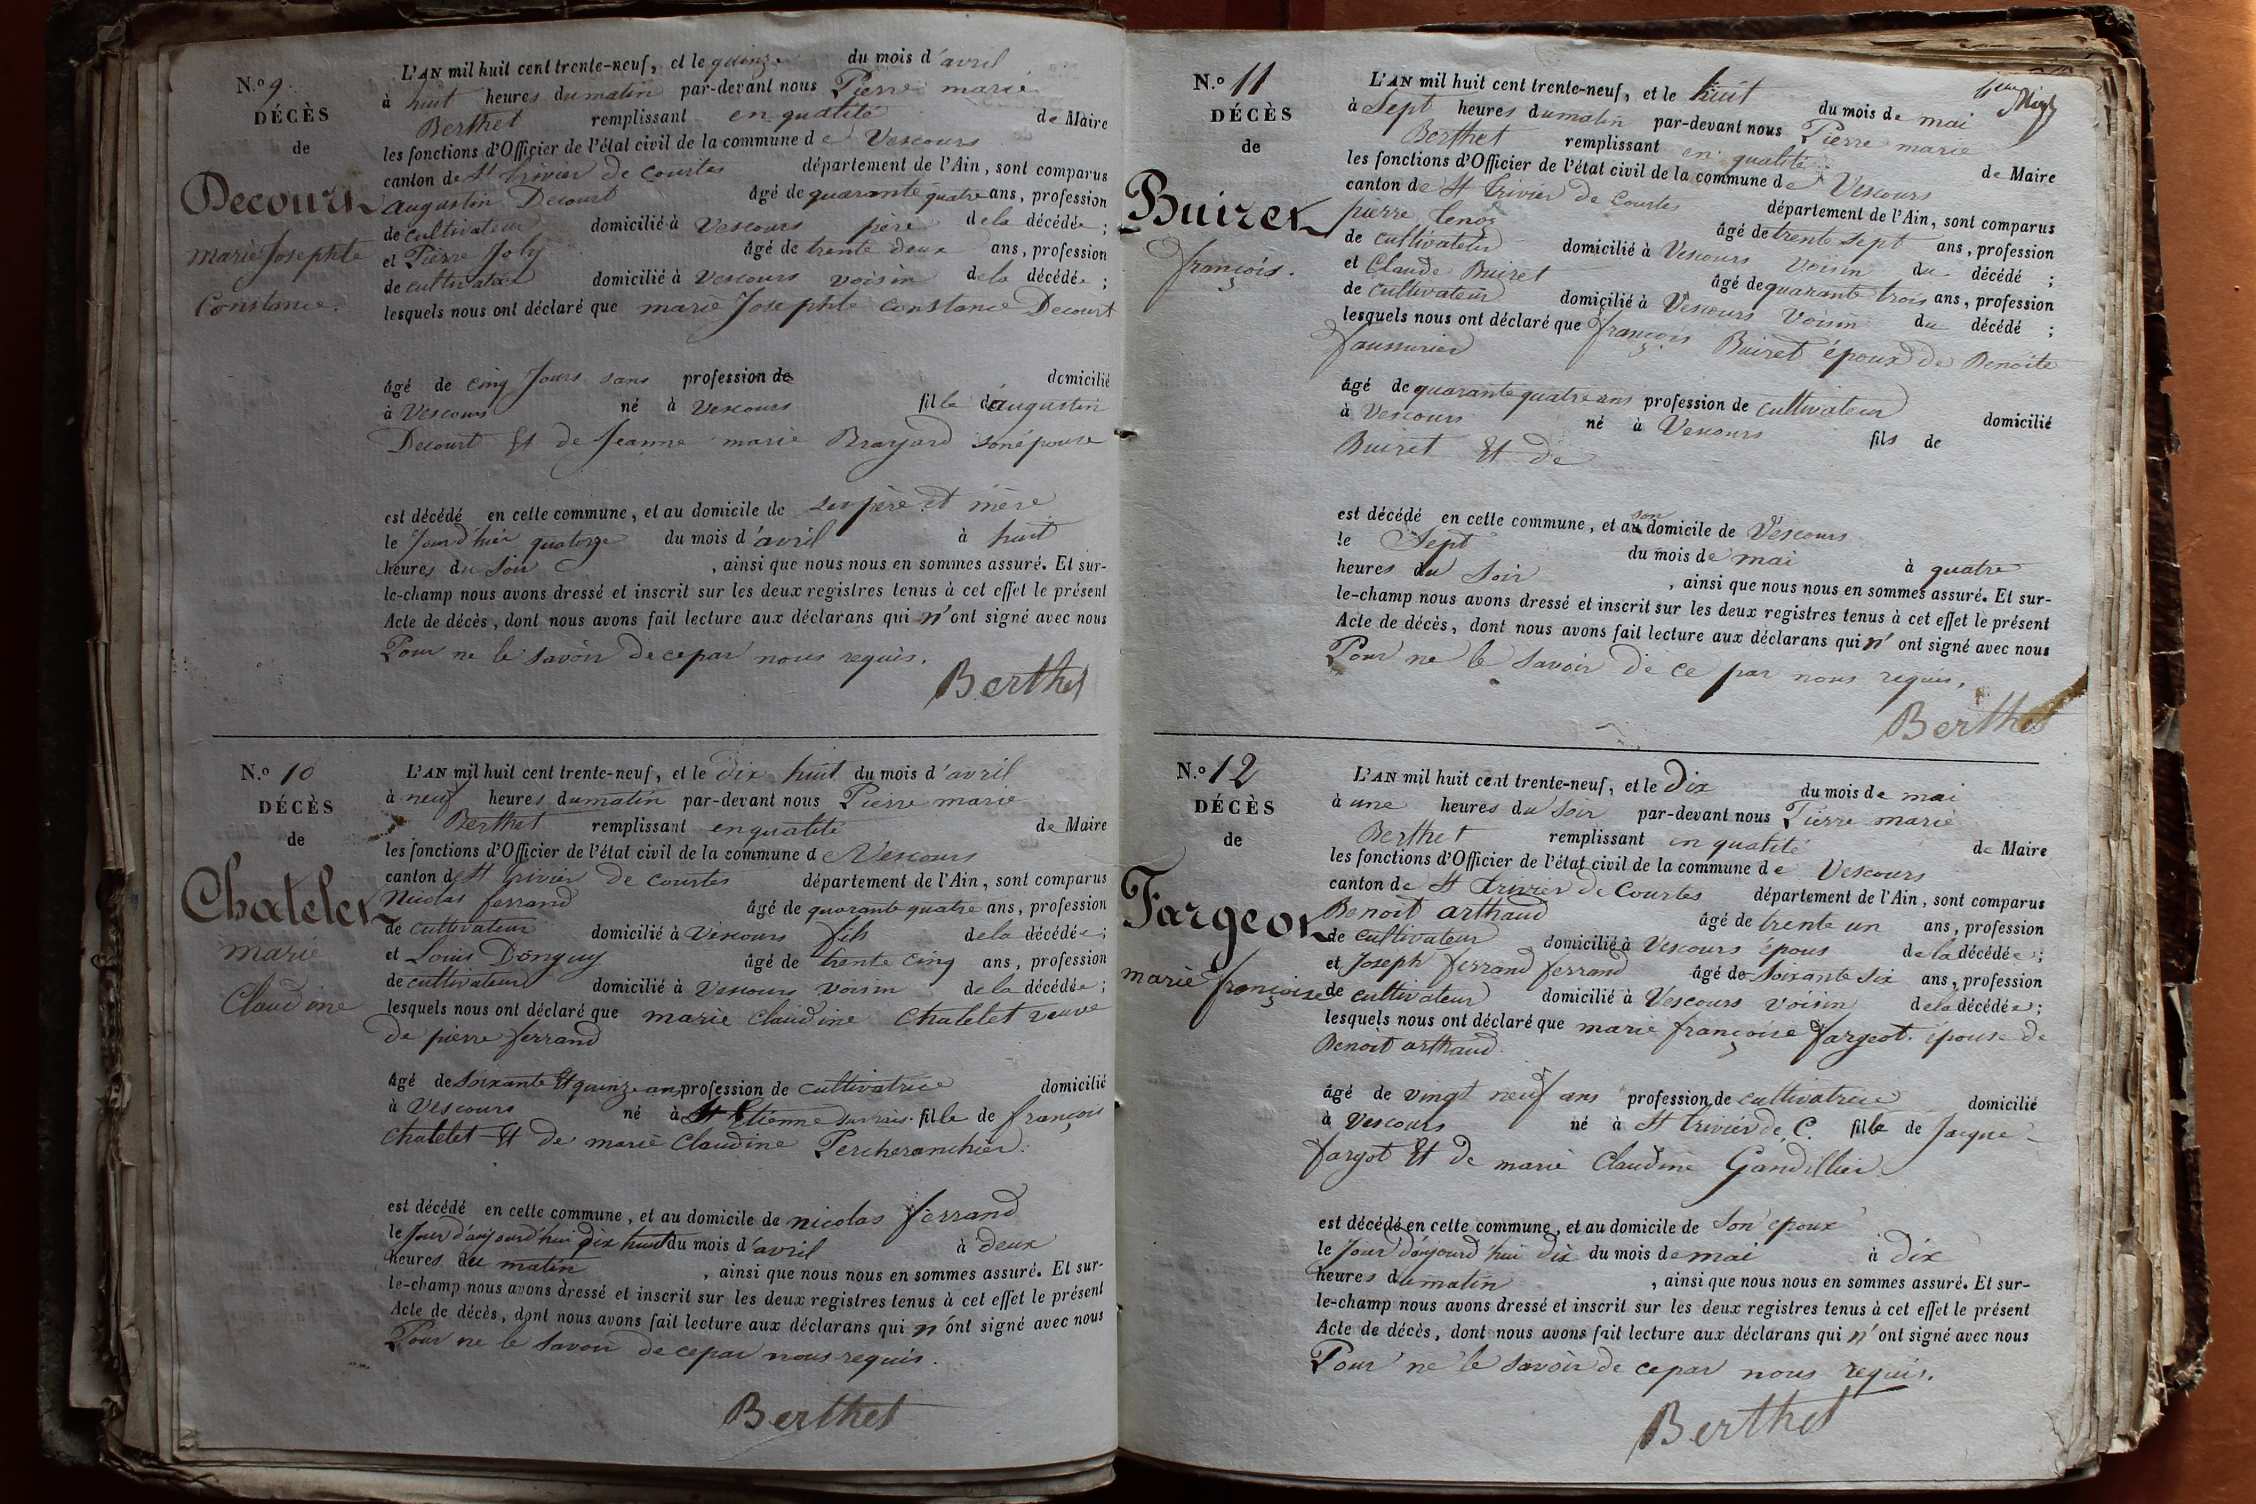 N.º 9
DÉCÈS
de
Decourt
marie Josephte
Constance.
L'AN mil huit cent trente-neuf, et le quinze du mois d'avril
à huit heures du matin par-devant nous Pierre marie
Berthet remplissant en qualité de Maire
les fonctions d'Officier de l'état civil de la commune de Vescours
canton de St trivier de Courtes département de l'Ain, sont comparus
augustin Decourt âgé de quarante quatre ans, profession
de cultivateur domicilié à Vescours père de la décédée ;
et Pierre Joly âgé de trente deux ans, profession
de cultivateur domicilié à Vescours voisin de la décédée ;
lesquels nous ont déclaré que marie Josephte Constance Decourt
âgé de cinq Jours sans profession de domicilié
à Vescours né à Vescours fille d'augustin
Decourt Et de Jeanne marie Brayard son épouse
est décédé en cette commune, et au domicile de ses père et mère
le Jour d'hier quatorze du mois d'avril à huit
heures du Soir , ainsi que nous nous en sommes assuré. Et sur-
le-champ nous avons dressé et inscrit sur les deux registres tenus à cet effet le présent
Acte de décès, dont nous avons fait lecture aux déclarans qui n'ont signé avec nous
Pour ne le Savoir de ce par nous requis.
Berthet
N.º 10
DÉCÈS
de
Chatelet
marie
Claudine
L'AN mil huit cent trente-neuf, et le dix huit du mois d'avril
à neuf heures du matin par-devant nous Pierre marie
Berthet remplissant en qualité de Maire
les fonctions d'Officier de l'état civil de la commune de Vescours
canton de St trivier de Courtes département de l'Ain, sont comparus
Nicolas ferrand âgé de quarante quatre ans, profession
de cultivateur domicilié à Vescours fils de la décédée ;
et Louis Donguy âgé de trente cinq ans, profession
de cultivateur domicilié à Vescours voisin de la décédée ;
lesquels nous ont déclaré que marie Claudine Chatelet veuve
de pierre ferrand
âgé de Soixante Et quinze ans profession de cultivatrice domicilié
à Vescours né à St Etienne fille de françois
Chatelet Et de marie Claudine
est décédé en cette commune, et au domicile de nicolas ferrand
le Jour d'aujourd'hui dix huit du mois d'avril à deux
heures du matin , ainsi que nous nous en sommes assuré. Et sur-
le-champ nous avons dressé et inscrit sur les deux registres tenus à cet effet le présent
Acte de décès, dont nous avons fait lecture aux déclarans qui n'ont signé avec nous
Pour ne le Savoir de ce par nous requis.
Berthet
N.º 11
DÉCÈS
de
Buiret
françois.
L'AN mil huit cent trente-neuf, et le huit du mois de mai
à Sept heures du matin par-devant nous Pierre marie
Berthet remplissant en qualité de Maire
les fonctions d'Officier de l'état civil de la commune de Vescours
canton de St trivier de Courtes département de l'Ain, sont comparus
pierre âgé de trente Sept ans, profession
de cultivateur domicilié à Vescours voisin du décédé ;
et Claude Buiret âgé de quarante trois ans, profession
de cultivateur domicilié à Vescours Voisin du décédé ;
lesquels nous ont déclaré que françois Buiret époux de Benoite
âgé de quarante quatre ans profession de cultivateur domicilié
à Vescours né à Vescours fils de
Buiret Et de
est décédé en cette commune, et au son domicile de Vescours
le Sept du mois de mai à quatre
heures du Soir , ainsi que nous nous en sommes assuré. Et sur-
le-champ nous avons dressé et inscrit sur les deux registres tenus à cet effet le présent
Acte de décès, dont nous avons fait lecture aux déclarans qui n'ont signé avec nous
Pour ne le Savoir de ce par nous requis.
Berthet
N.º 12
DÉCÈS
de
Fargeot
marie françoise
L'AN mil huit cent trente-neuf, et le Dix du mois de mai
à une heures du Soir par-devant nous Pierre marie
Berthet remplissant en qualité de Maire
les fonctions d'Officier de l'état civil de la commune de Vescours
canton de St trivier de Courtes département de l'Ain, sont comparus
Benoit arthaud âgé de trente un ans, profession
de cultivateur domicilié à Vescours époux de la décédée ;
et Joseph ferrand ferrand âgé de Soixante Six ans, profession
de cultivateur domicilié à Vescours voisin de la décédée ;
lesquels nous ont déclaré que marie françoise fargeot épouse de
Benoit arthaud
âgé de vingt neuf ans profession de cultivatrice domicilié
à Vescours né à St trivier de C. fille de Jacque
fargot Et de marie Claudine Gandillier
est décédé en cette commune, et au domicile de Son époux
le Jour d'aujourd'hui dix du mois de mai à dix
heures du matin , ainsi que nous nous en sommes assuré. Et sur-
le-champ nous avons dressé et inscrit sur les deux registres tenus à cet effet le présent
Acte de décès, dont nous avons fait lecture aux déclarans qui n'ont signé avec nous
Pour ne le Savoir de ce par nous requis.
Berthet